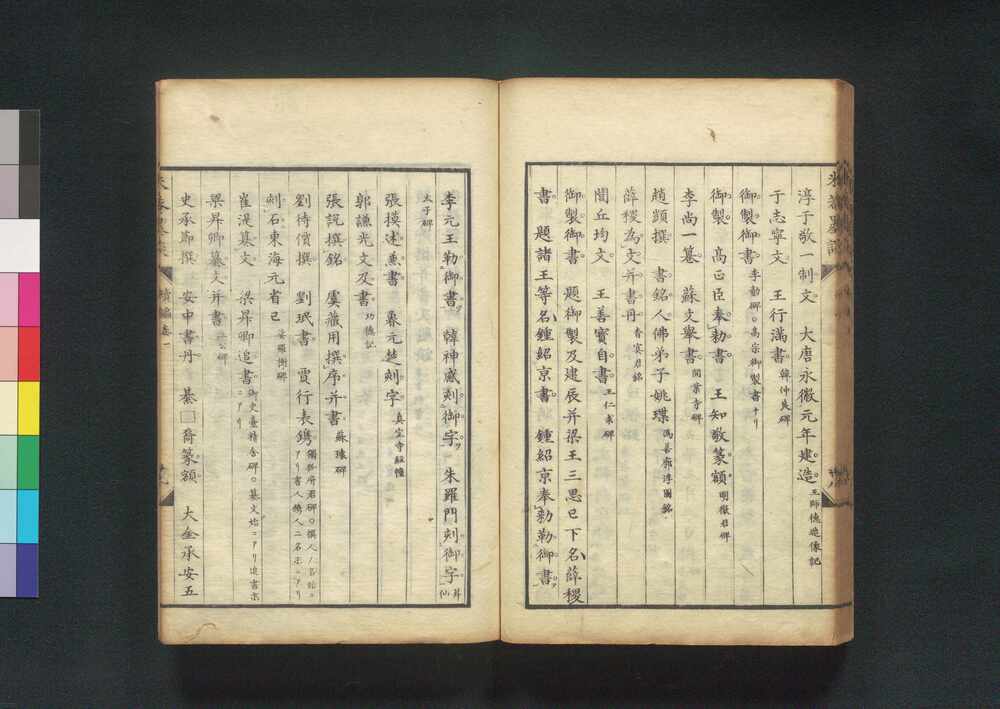 淳于敬一制文　大唐永徽元年建造　王師德造像記
于志寧文　王行滿書　韓仲良碑
御製御書　李勣碑。高宗御製書ナリ
御製　高正臣奉勅書　王知敬篆額　明徵君碑
李尚一篹　蘇文舉書　開業寺碑
趙顗撰　書銘人佛弟子姚璟　馮善廓浮圖銘
薛稷為文并書丹　杳冥君銘
閭丘均文　王善寶自書　王仁求碑
御製御書　題御製及建辰并梁王三思已下名薛稷
書　題諸王等名鍾紹京書　鍾紹京奉勅勒御書
李元王勒御書　韓神感刻御字　朱羅門刻御字　昇仙
太子碑
張摸述兼書　暮元楚刻字　真空寺經幢
郭謙光文及書　功德記
張說撰銘　盧藏用撰序并書　蘇瓌碑
劉待價撰　劉珉書　賈行表鐫　獨孤府君碑。撰人ノ名始ニアリ書人鐫人二名末ニアリ
刻石東海元省己　娑羅樹碑
崔湜篹文　梁昇卿追書　御史臺精舍碑。篹文始ニアリ追書末ニアリ
梁昇卿篹文并書
史承節撰　安申書丹　綦□裔篆額　大金承安五
續編卷一